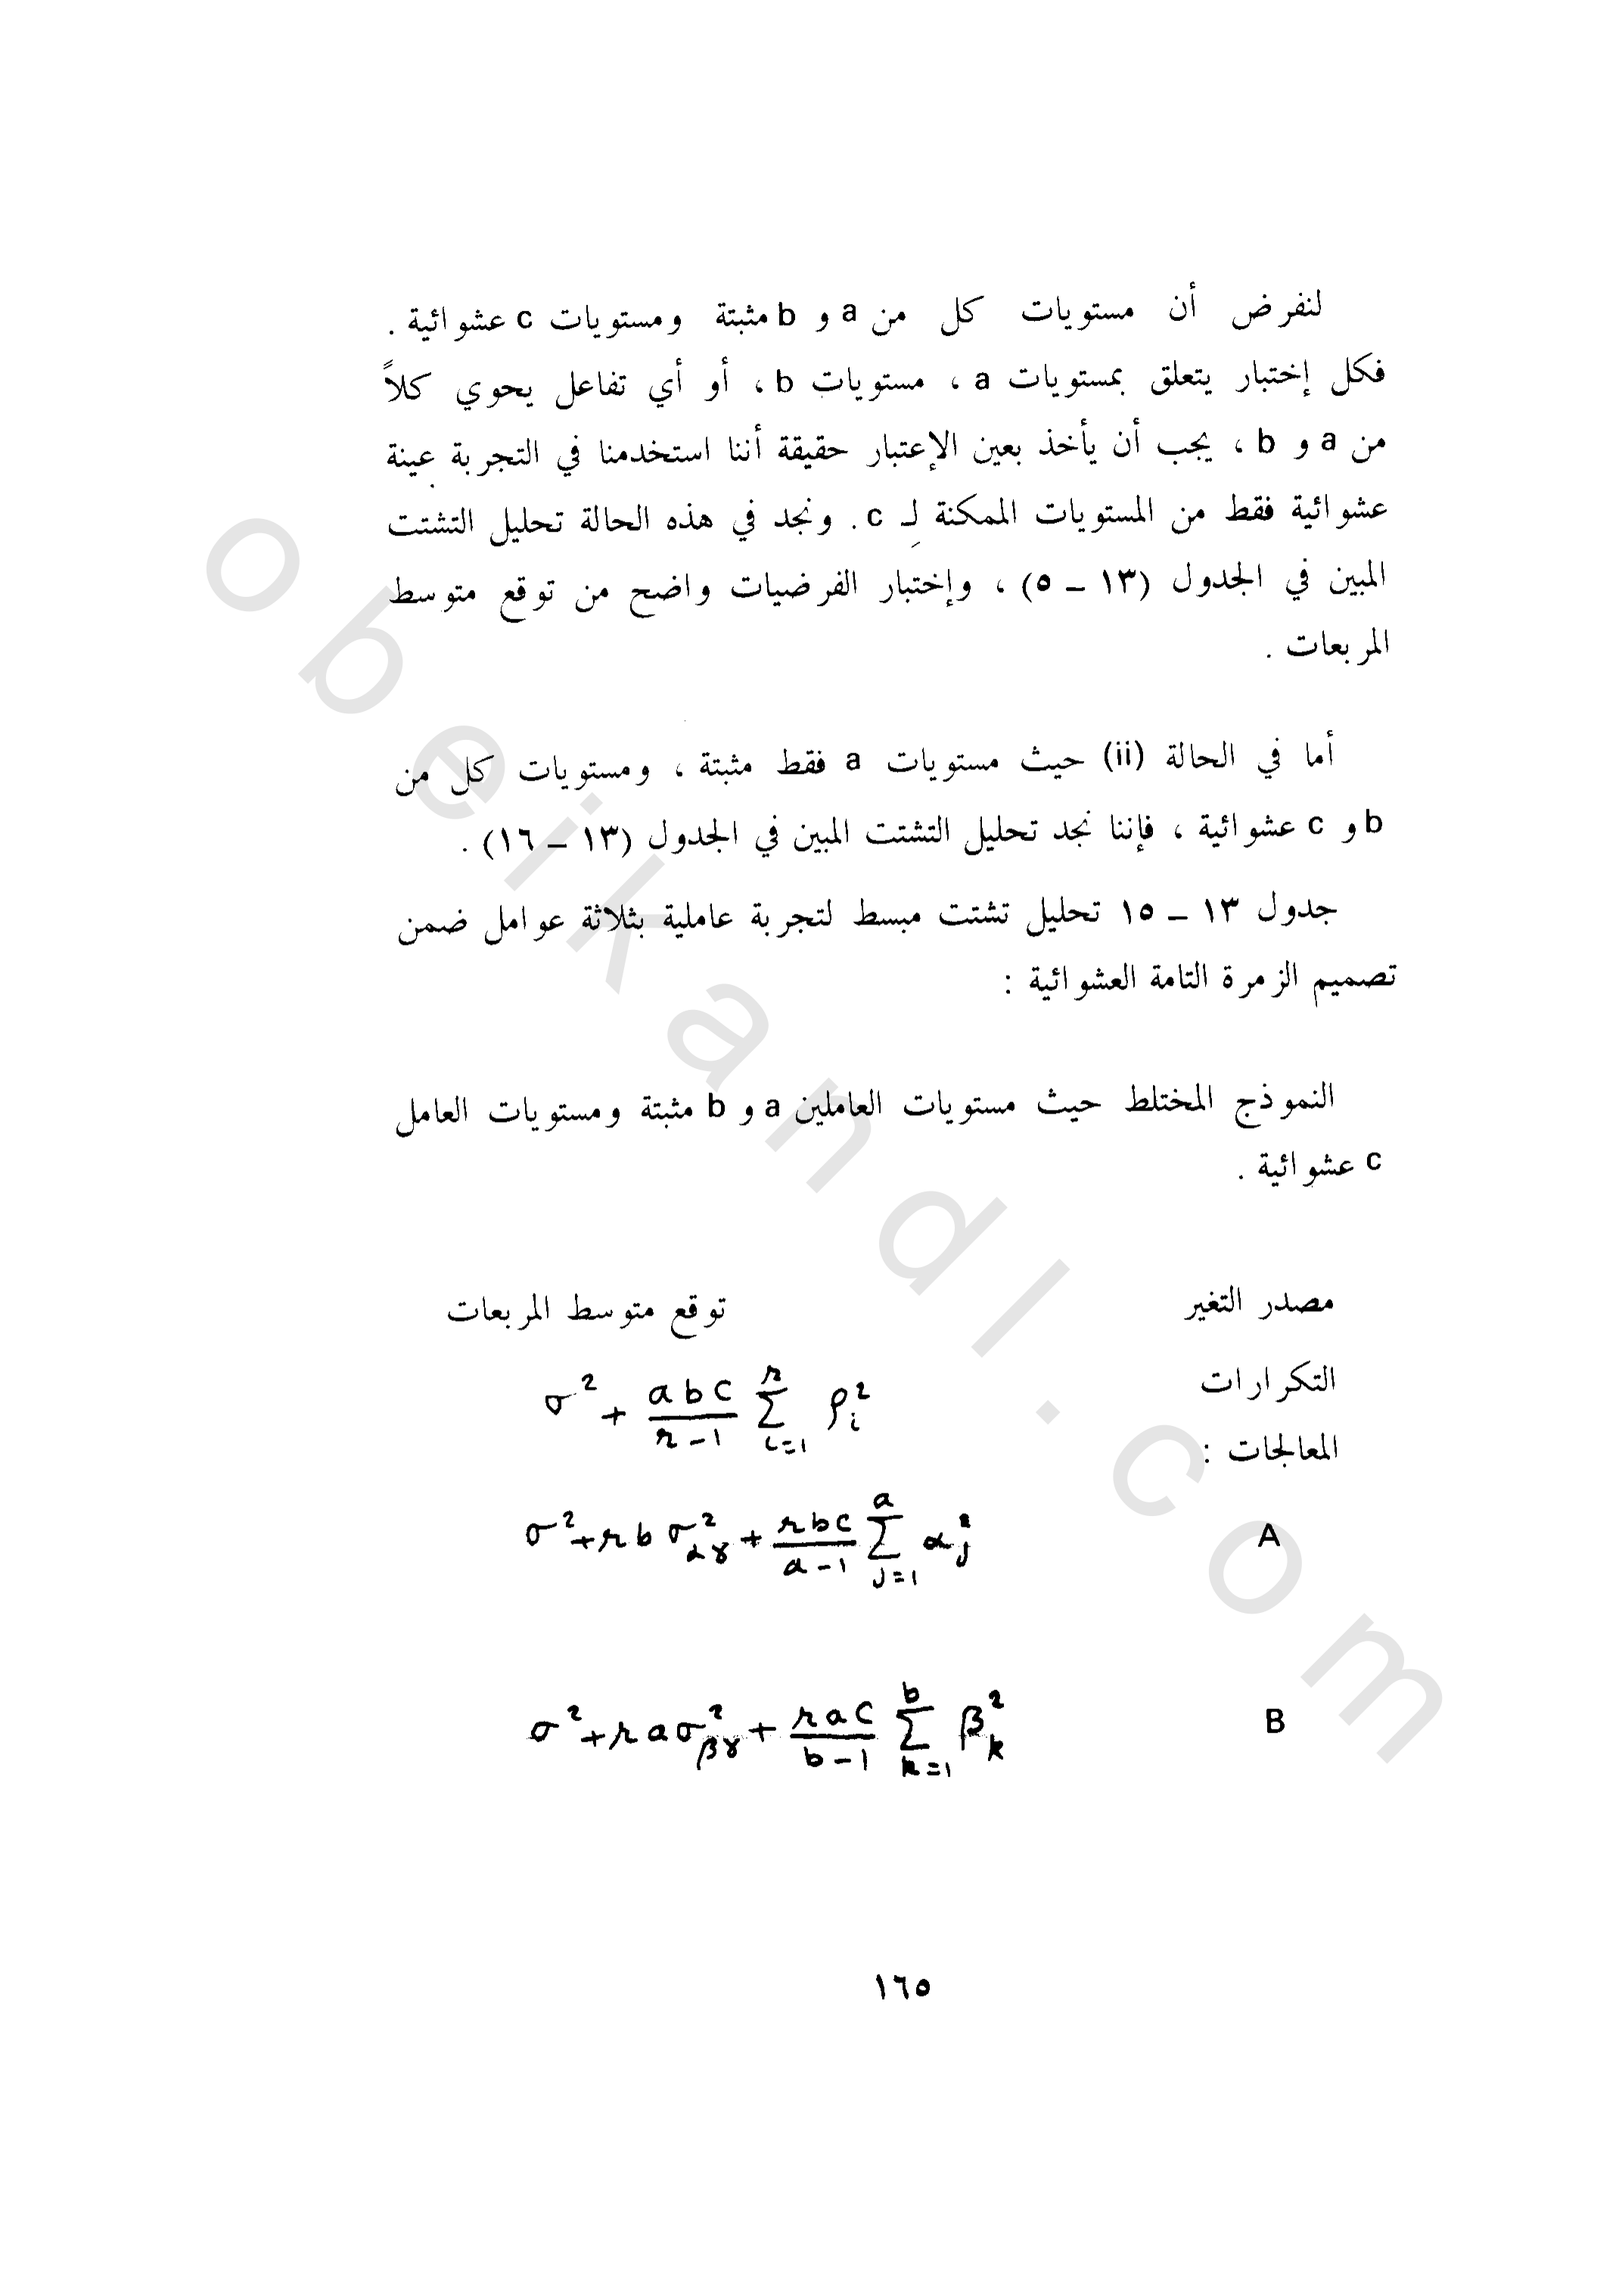 لنفرض أن مستويات كل من a و b مثبتة ومستويات c عشوائية .
فكل إختبار يتعلق بمستويات a ، مستويات b ، أو أي تفاعل يحوي كلاً
من a و b ، يجب أن يأخذ بعين الإعتبار حقيقة أننا استخدمنا في التجربة عينة
عشوائية فقط من المستويات الممكنة لـ c . ونجد في هذه الحالة تحليل التشتت
المبين في الجدول (١٣ – ٥) ، وإختبار الفرضيات واضح من توقع متوسط
المربعات .
أما في الحالة (ii) حيث مستويات a فقط مثبتة ، ومستويات كل من
b و c عشوائية ، فإننا نجد تحليل التشتت المبين في الجدول (١٣ – ١٦) .
جدول ١٣ – ١٥ تحليل تشتت مبسط لتجربة عاملية بثلاثة عوامل ضمن
تصميم الزمرة التامة العشوائية :
النموذج المختلط حيث مستويات العاملين a و b مثبتة ومستويات العامل
c عشوائية .
مصدر التغير توقع متوسط المربعات
التكرارات σ² + \frac{abc}{r-1} \sum_{i=1}^{r} ρ_i^2
المعالجات :
A σ² + rb σ_{αγ}^2 + \frac{rbc}{a-1} \sum_{j=1}^{a} α_j^2
B σ² + ra σ_{βγ}^2 + \frac{rac}{b-1} \sum_{k=1}^{b} β_k^2
١٦٥
obeikandl.com